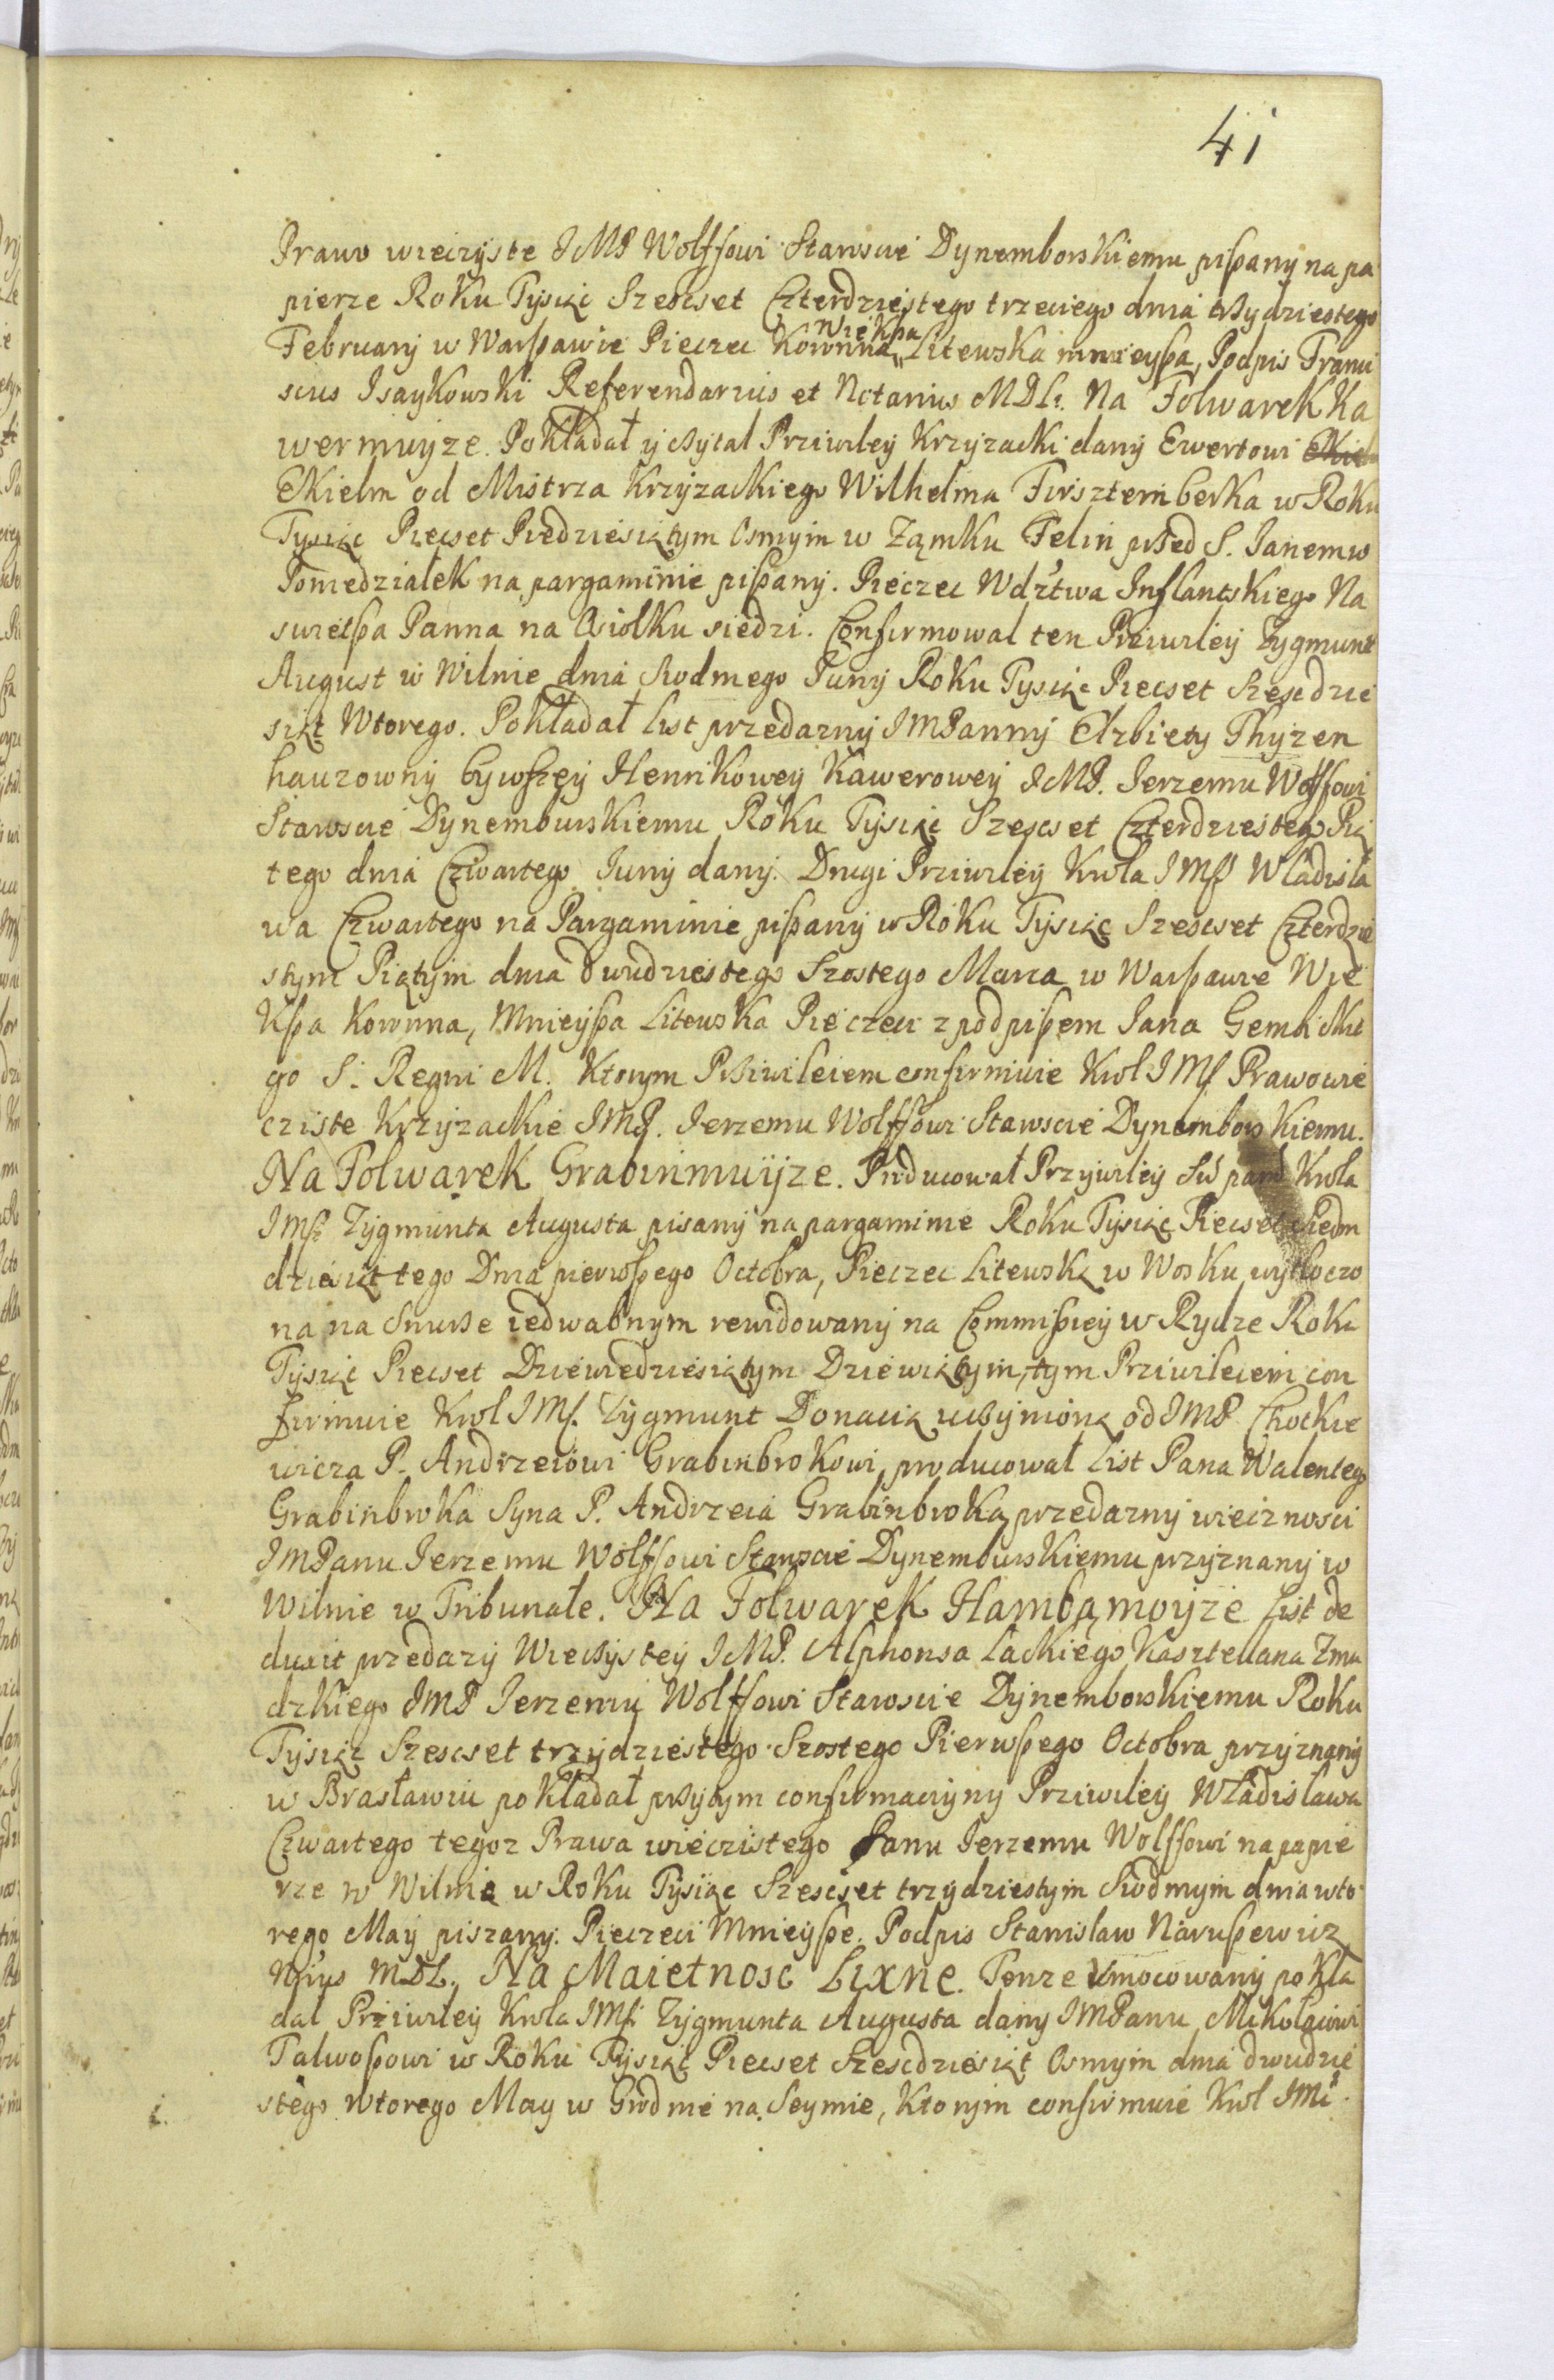 41
Prawo wieczyste JMP Wolffowi Starosćie Dynemborskiemu piszany na pa
pierze Roku Tysiąc Szescset Czterdziestego trzeciego dnia trzydziestego
February w Warszawie Pieczec Koronna Wiekßa Litewska mnieyßa, Podpis Franci
scus Isaykowski Referendarius et Notarius MDL. Na Folwarek Ka
wermuyze. Pokładał y czytal Prziviley Krzyzacki dany Ewertowi
Ekieln od Mistrza Krzyzackiego Wilhelma Firsztemberka w Roku
Tysiąc Piecset Piedziesiątym Osmym w Ząmku Felin przed S. Janem w
Poniedziałek na pargaminie pißany. Pieczec Wdztwa Inflantskiego Na
swietßa Panna na Osiołku siedzi. Confirmował ten Priwiley Zygmunt
August w Wilnie dnia Siodmego Juny Roku Tysiąc Piecset Szescdzie
siąt Wtorego. Pokładał list przedazny JMPanny Elzbiety Thyzen
hauzowny bywszey Henrikowey Kawerowey JMP. Jerzemu Wolffowi
Starosćie Dynemburskiemu Roku Tysiąc Szescset Czterdziestego Pią
tego dnia Czwartego Juny dany. Drugi Priwiley Krola JMſ Wladisła
wa Czwartego na Pargaminie pißany w Roku Tysiąc Szescset Czterdzie
stym Piątym dnia dwudziestego Szostego Marca w Warßawie Wie
kßa Koronna, Mnieyßa Litewska Pieczeci z podpißem Jana Gembickie
go S. Regni M. Ktorym Prziwileiem confirmuie Krol JMſ Prawo wie
cziste Krzyzackie JMP. Jerzemu Wolffowi Starosćie Dynemborskiemu.
Na Folwarek Grabinmuyze. Producował Przywiley Sw pam Krola
JMſ Zygmunta Augusta pisany na pargaminie Roku Tysiąc Piecset Siedm
dziesiąttego Dnia pierwßego Octobra, Pieczec Litewską w Wosku wytłoczo
na na Snurze iedwabnym rewidowany na Commißiey w Rydze Roku
Tysiąc Piecset Dziewiedziesiątym Dziewiątym, tym Prziwileiem con
firmuie Krol JMſ. Zygmunt Donacią uczynioną od JMP Chodkie
wicza P. Andrzeiowi Grabinbrokowi, producował List Pana Walentego
Grabinbroka Syna P. Andrzeia Grabinbroka przedazny wiecznosci
JMPanu Jerzemu Wolffowi Starosćie Dynemburskiemu przyznany w
Wilnie w Tribunale. Na Folwarek Hambamoyze list de
duxit przedazy Wieczystey JMP. Alphonsa Lackiego Kasztellana Zmu
dzkiego JMP Jerzemu Wolffowi Starosćie Dynemborskiemu Roku
Tysiąc Szescset trzydziestego Szostego Pierwßego Octobra przyznany
w Brasławiu pokładał przytym confirmacyiny Priwiley Władisława
Czwartego tegoz Prawa wieczistego Panu Jerzemu Wolffowi na papie
rze w Wilnie w Roku Tysiąc Szescset trzydziestym Siodmym dnia wto
rego May piszany. Pieczeci Mnieyße. Podpis Stanislaw Narußewicz
Nrius MDL. Na Maietnosc Lixne. Tenze Umocowany pokla
dal Priwiley Krola JMſ. Zygmunta Augusta dany JMPanu Mikolaiowi
Talwoßowi w Roku Tysiąc Piecset Szescdziesiąt Osmym dnia dwudzie
stego wtorego May w Grodnie na Seymie, Ktorym confirmuie Krol JMć.